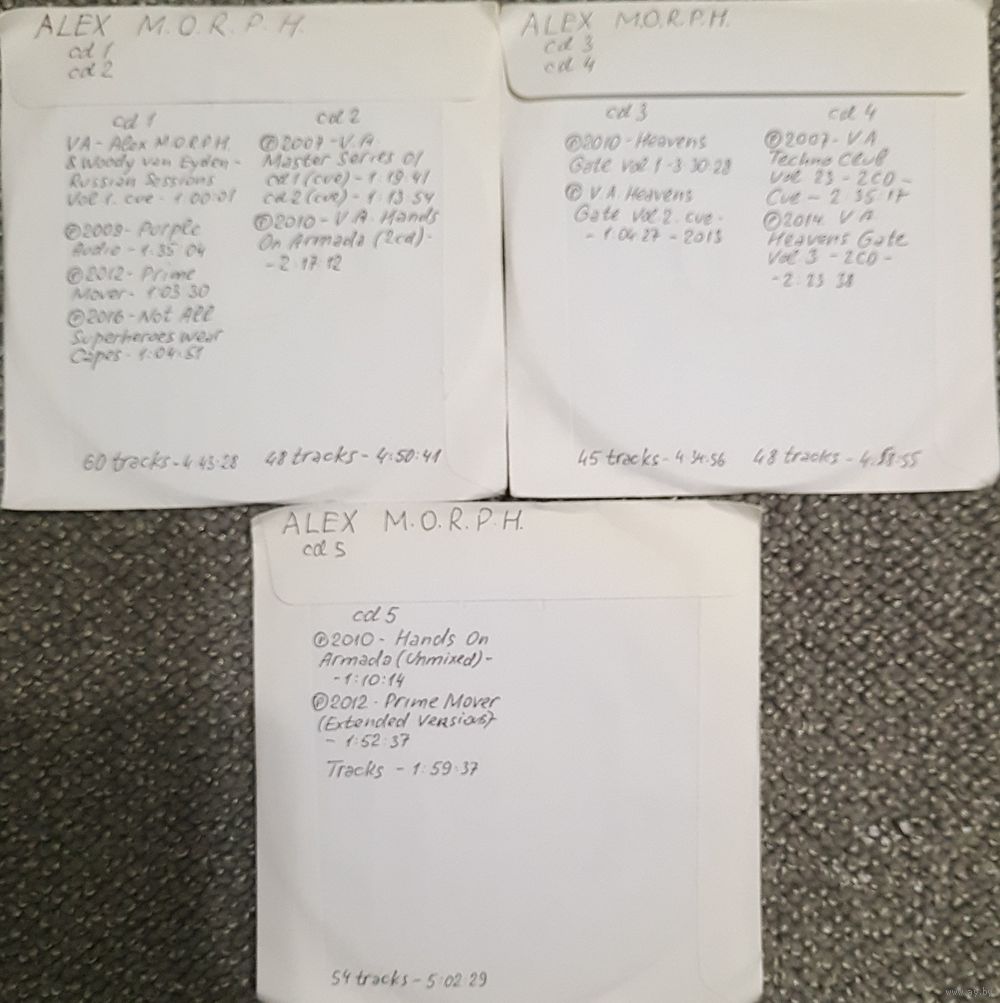 ALEX M.O.R.P.H.
cd 1
cd 2
cd 1
VA - Alex M.O.R.P.H.
& Woody van Eyden -
Russian Sessions
Vol 1. cue - 1:00:01
℗2009 - Purple
Audio - 1:35:04
℗2012 - Prime
Mover - 1:03:30
℗2016 - Not All
Superheroes wear
Capes - 1:04:51
60 tracks - 4:43:28
cd 2
℗2007 - V.A.
Master Series 01
cd 1 (cue) - 1:19:41
cd 2 (cue) - 1:13:54
℗2010 - V.A. Hands
On Armada (2cd) -
- 2:17:12
48 tracks - 4:50:41
ALEX M.O.R.P.H.
cd 3
cd 4
cd 3
℗2010 - Heavens
Gate Vol 1 - 3:30:28
℗ V.A. Heavens
Gate Vol 2. cue -
- 1:04:27 - 2013
45 tracks - 4:34:56
cd 4
℗2007 - V.A
Techno Club
Vol 23 - 2CD -
Cue - 2:35:17
℗2014. V.A.
Heavens Gate
Vol 3 - 2CD -
- 2:23:38
48 tracks - 4:55
ALEX M.O.R.P.H.
cd 5
cd 5
℗2010 - Hands On
Armada (Unmixed) -
- 1:10:14
℗2012 - Prime Mover
(Extended Versions)
- 1:52:37
Tracks - 1:59:37
54 tracks - 5:02:29
www.ay.by